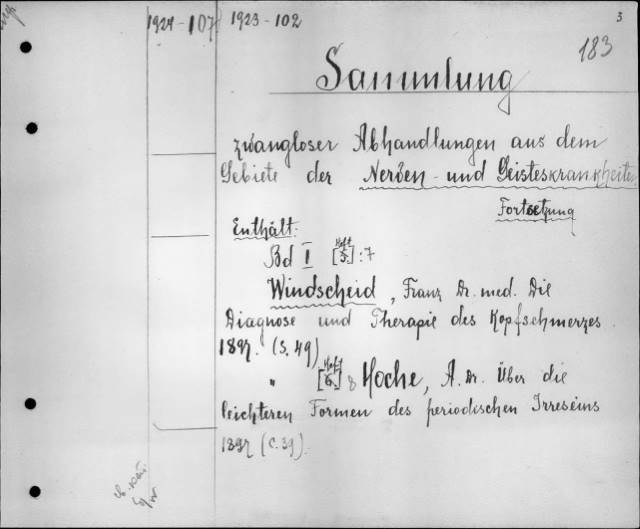 1924-107 1923-102
3
183
Sammlung
zwangloser Abhandlungen aus dem
Gebiete der Nerven- und Geisteskrankheiten
Fortsetzung
Enthält:
Bd I [Heft 5.]:7
Windscheid, Franz Dr. med. Die
Diagnose und Therapie des Kopfschmerzes
1897. (S. 49)
" [Heft 6.] 8 Hoche, A. Dr. Über die
leichteren Formen des periodischen Irreseins
1897 (C. 39).